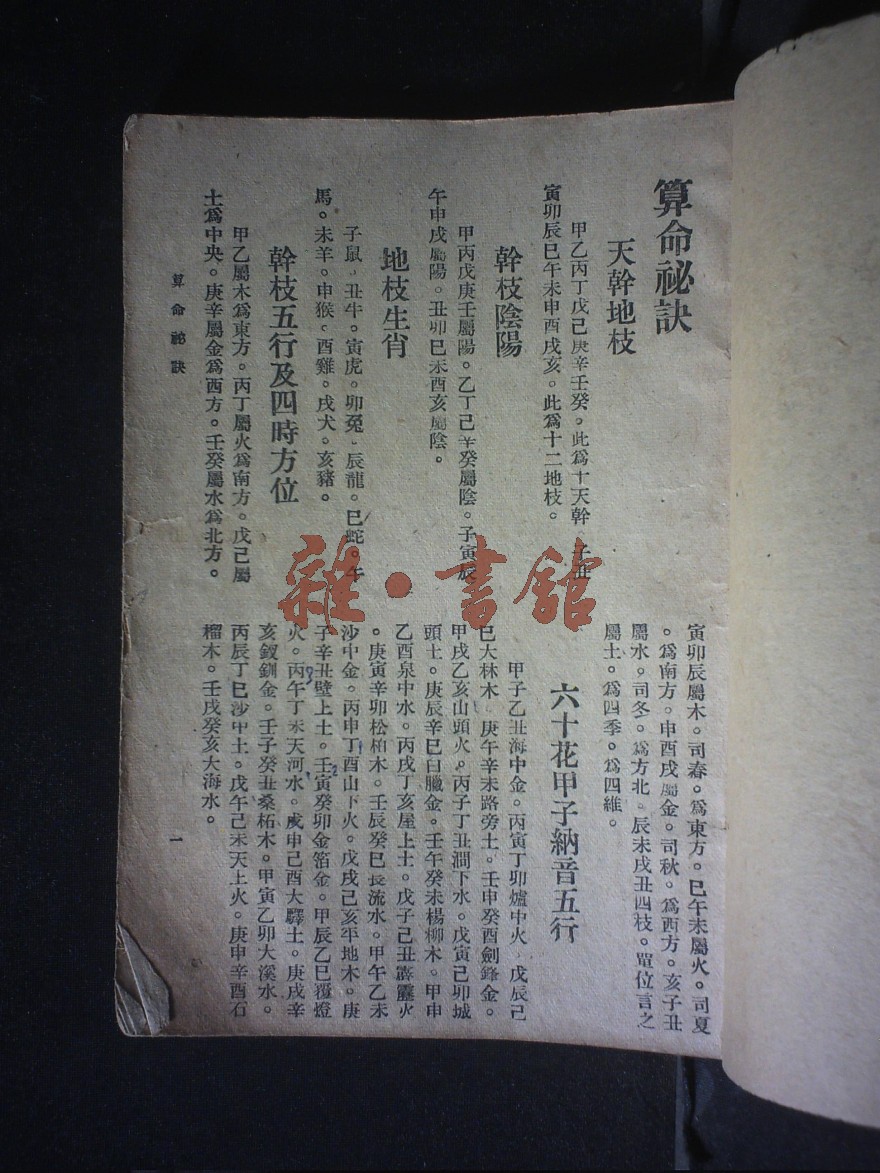 算命祕訣
天幹地枝
甲乙丙丁戊己庚辛壬癸。此爲十天幹 子丑
寅卯辰巳午未申酉戌亥。此爲十二地枝。
幹枝陰陽
甲丙戊庚壬屬陽。乙丁己辛癸屬陰。子寅辰
午申戌屬陽。丑卯巳未酉亥屬陰。
地枝生肖
子鼠。丑牛。寅虎。卯兔。辰龍。巳蛇。午
馬。未羊。申猴。酉雞。戌犬。亥豬。
幹枝五行及四時方位
甲乙屬木爲東方。丙丁屬火爲南方。戊己屬
土爲中央。庚辛屬金爲西方。壬癸屬水爲北方。
寅卯辰屬木。司春。爲東方。巳午未屬火。司夏
。爲南方。申酉戌屬金。司秋。爲西方。亥子丑
屬水。司冬。爲方北。辰未戌丑四枝。單位言之
屬土。爲四季。爲四維。
六十花甲子納音五行
甲子乙丑海中金。丙寅丁卯爐中火。戊辰己
巳大林木。庚午辛未路旁土。壬申癸酉劍鋒金。
甲戌乙亥山頭火。丙子丁丑澗下水。戊寅己卯城
頭土。庚辰辛巳白臘金。壬午癸未楊柳木。甲申
乙酉泉中水。丙戌丁亥屋上土。戊子己丑霹靂火
。庚寅辛卯松柏木。壬辰癸巳長流水。甲午乙未
沙中金。丙申丁酉山下火。戊戌己亥平地木。庚
子辛丑壁上土。壬寅癸卯金箔金。甲辰乙巳覆燈
火。丙午丁未天河水。戊申己酉大驛土。庚戌辛
亥釵釧金。壬子癸丑桑柘木。甲寅乙卯大溪水。
丙辰丁巳沙中土。戊午己未天上火。庚申辛酉石
榴木。壬戌癸亥大海水。
算命祕訣
一
雜·書館